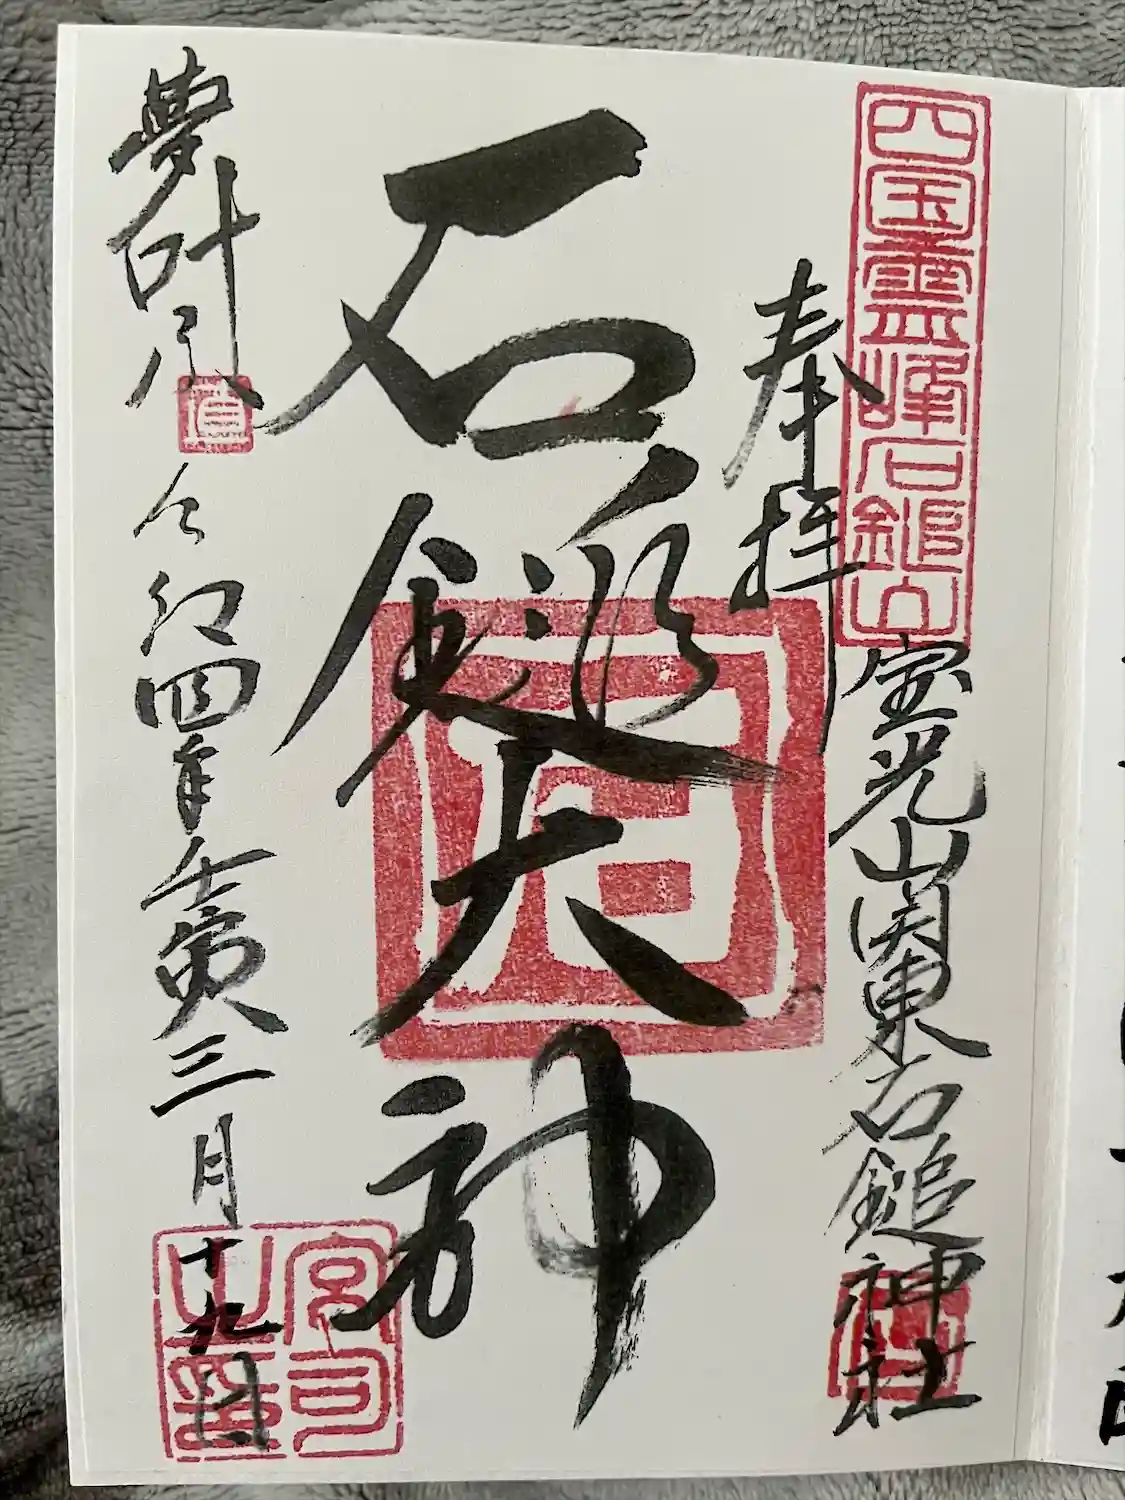 四国霊峰石鎚山
奉拝
宝光山関東石鎚神社
石鎚大神
夢叶

令和四年壬寅三月十九日
宮司之印